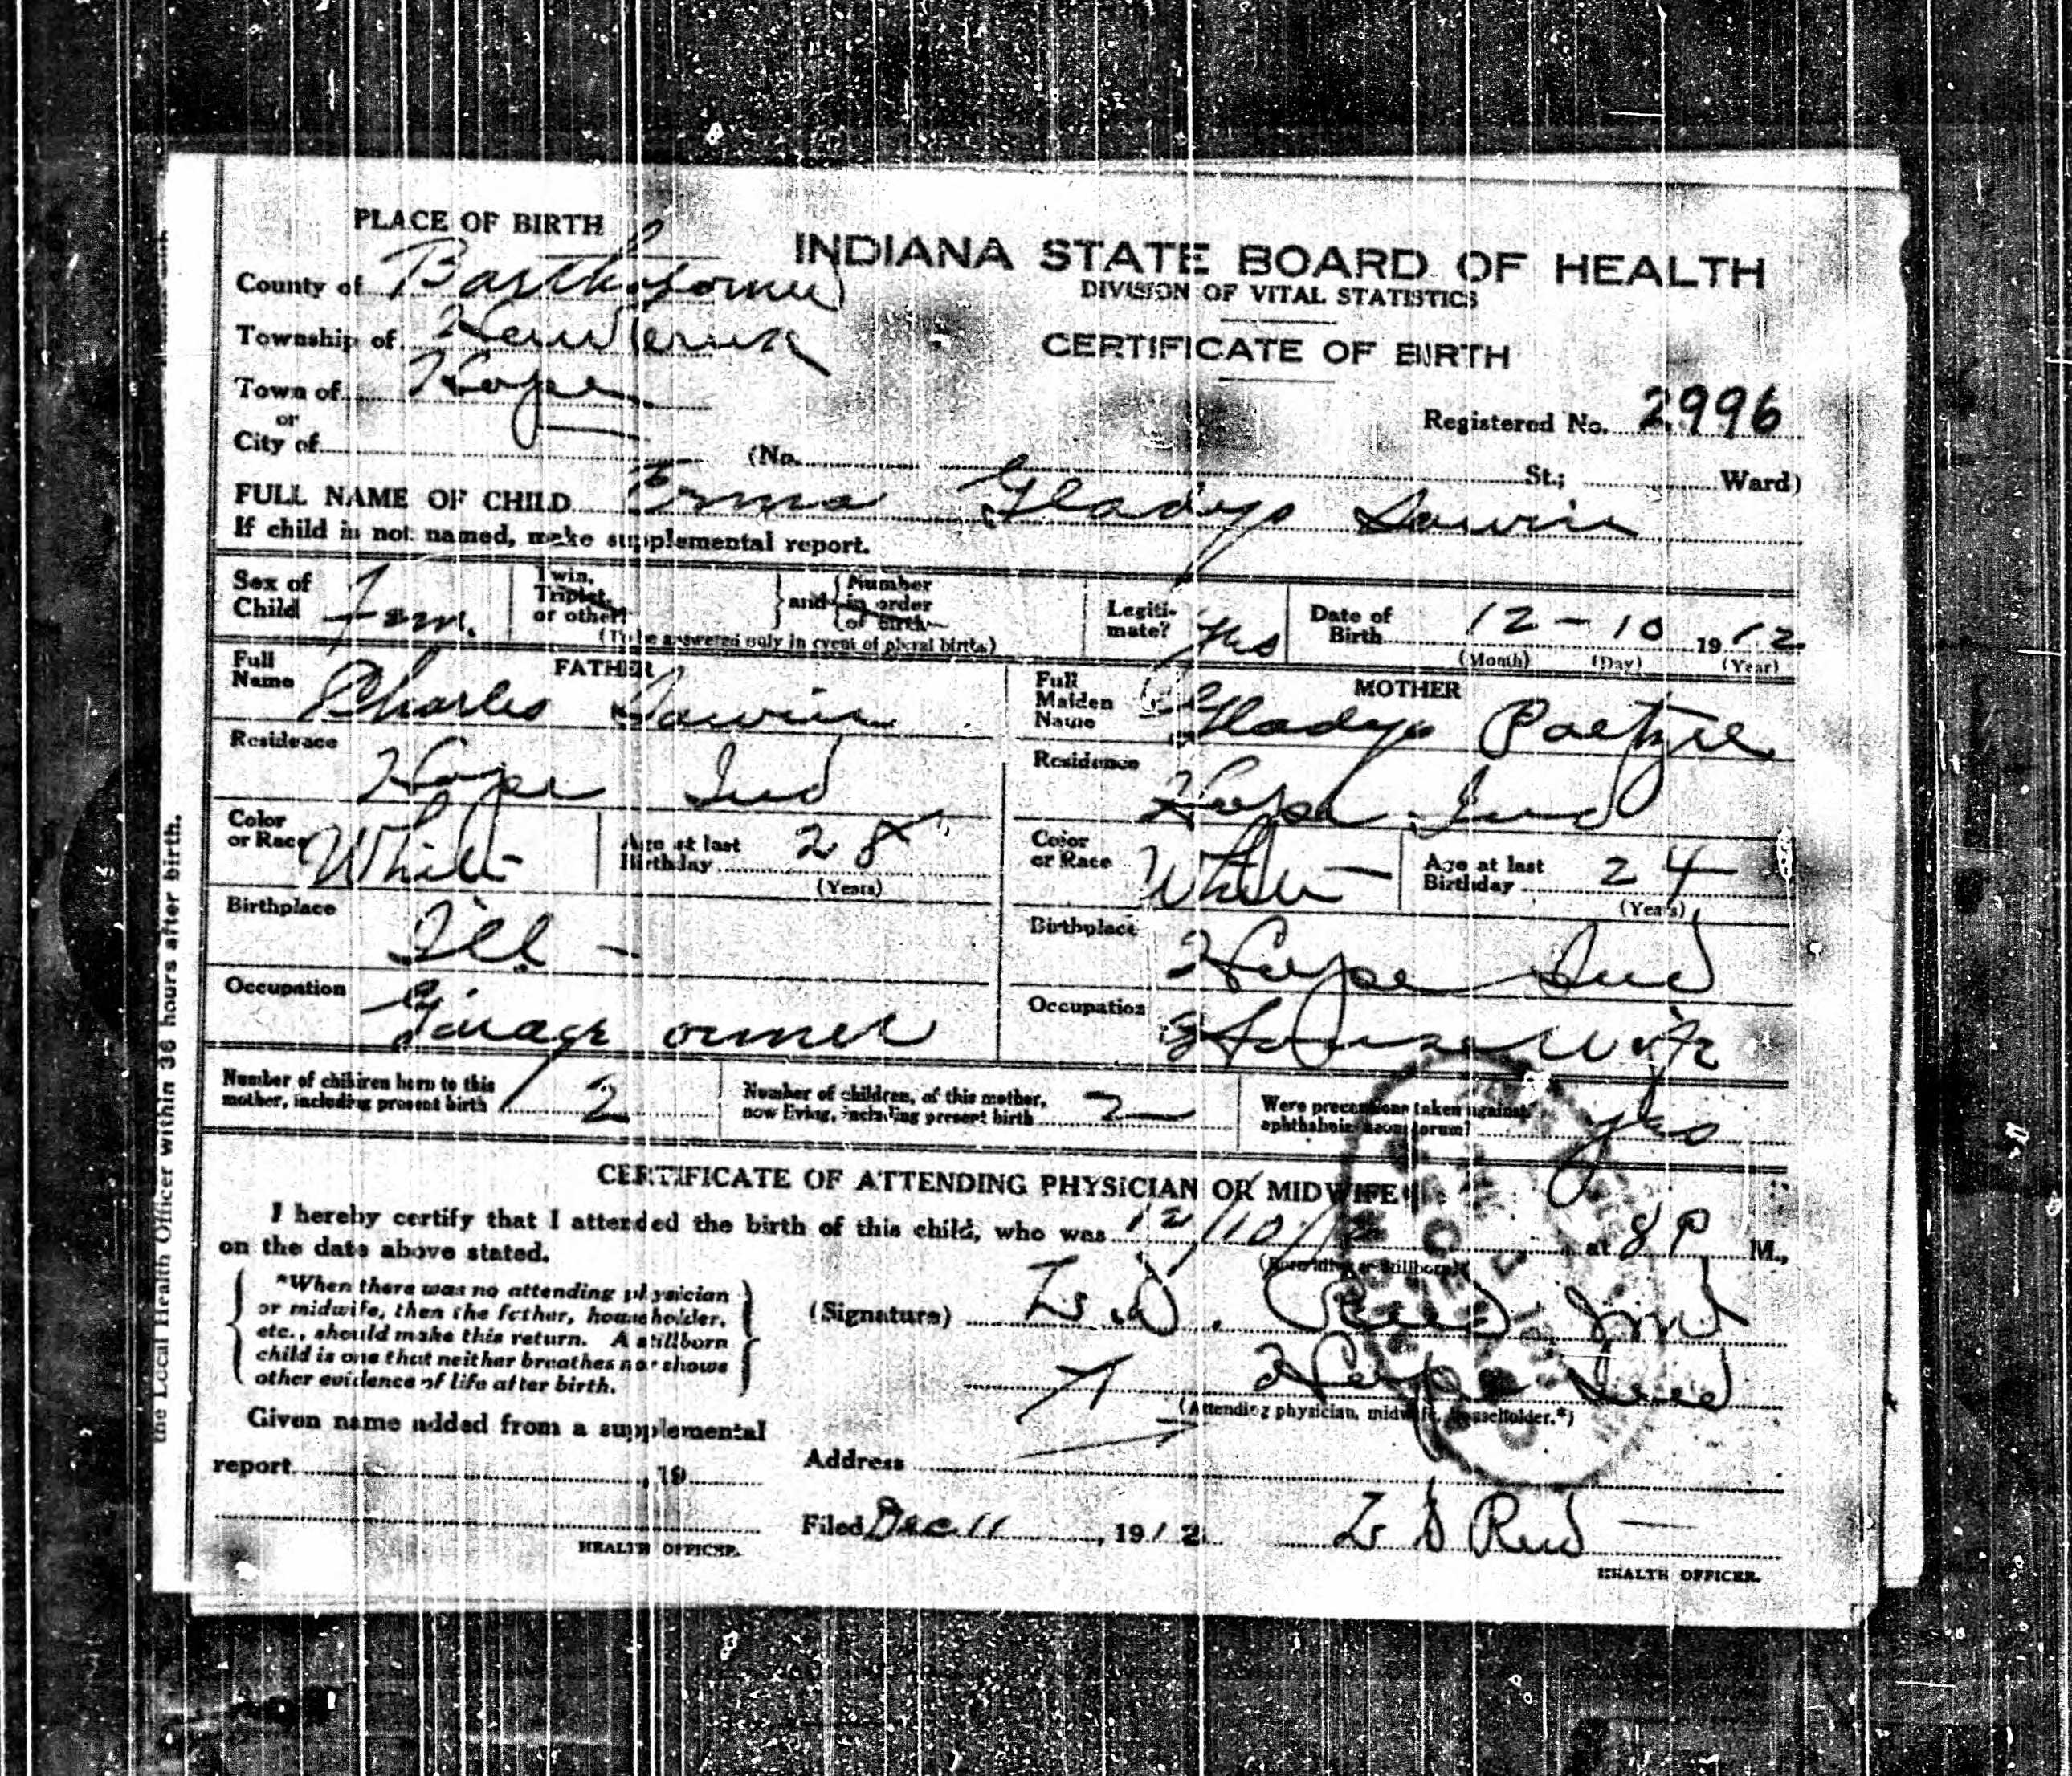 PLACE OF BIRTH
County of Bartholomew
Township of Hawcreek
Town of Hope
or
City of
INDIANA STATE BOARD OF HEALTH
DIVISION OF VITAL STATISTICS
CERTIFICATE OF BIRTH
Registered No. 2996
(No. St.; Ward)
FULL NAME OF CHILD Erma Gladys Sawin
If child is not named, make supplemental report.
Sex of Child Fem.
Twin, Triplet, or other?
and Number in order of birth
(To be answered only in event of plural births)
Legitimate? Yes
Date of Birth 12-10 1912
(Month) (Day) (Year)
FATHER
Full Name Charles Sawin
Residence Hope Ind
Color or Race White
Age at last Birthday 28
(Years)
Birthplace Ill -
Occupation Garage owner
MOTHER
Full Maiden Name Gladys Paetzel
Residence Hope Ind
Color or Race White
Age at last Birthday 24
(Years)
Birthplace Hope Ind
Occupation Housewife
Number of children born to this mother, including present birth 2
Number of children, of this mother, now living, including present birth 2
Were precautions taken against ophthalmia neonatorum? yes
CERTIFICATE OF ATTENDING PHYSICIAN OR MIDWIFE
I hereby certify that I attended the birth of this child, who was 12/10/12 at 8 P M.,
(Born alive or stillborn)
on the date above stated.
*When there was no attending physician
or midwife, then the father, householder,
etc., should make this return. A stillborn
child is one that neither breathes nor shows
other evidence of life after birth.
(Signature) Reid
Hope Ind
(Attending physician, midwife, householder.*)
Given name added from a supplemental
report , 19
Address
HEALTH OFFICER.
Filed Dec 11, 1912 Reid
HEALTH OFFICER.
the Local Health Officer within 36 hours after birth.